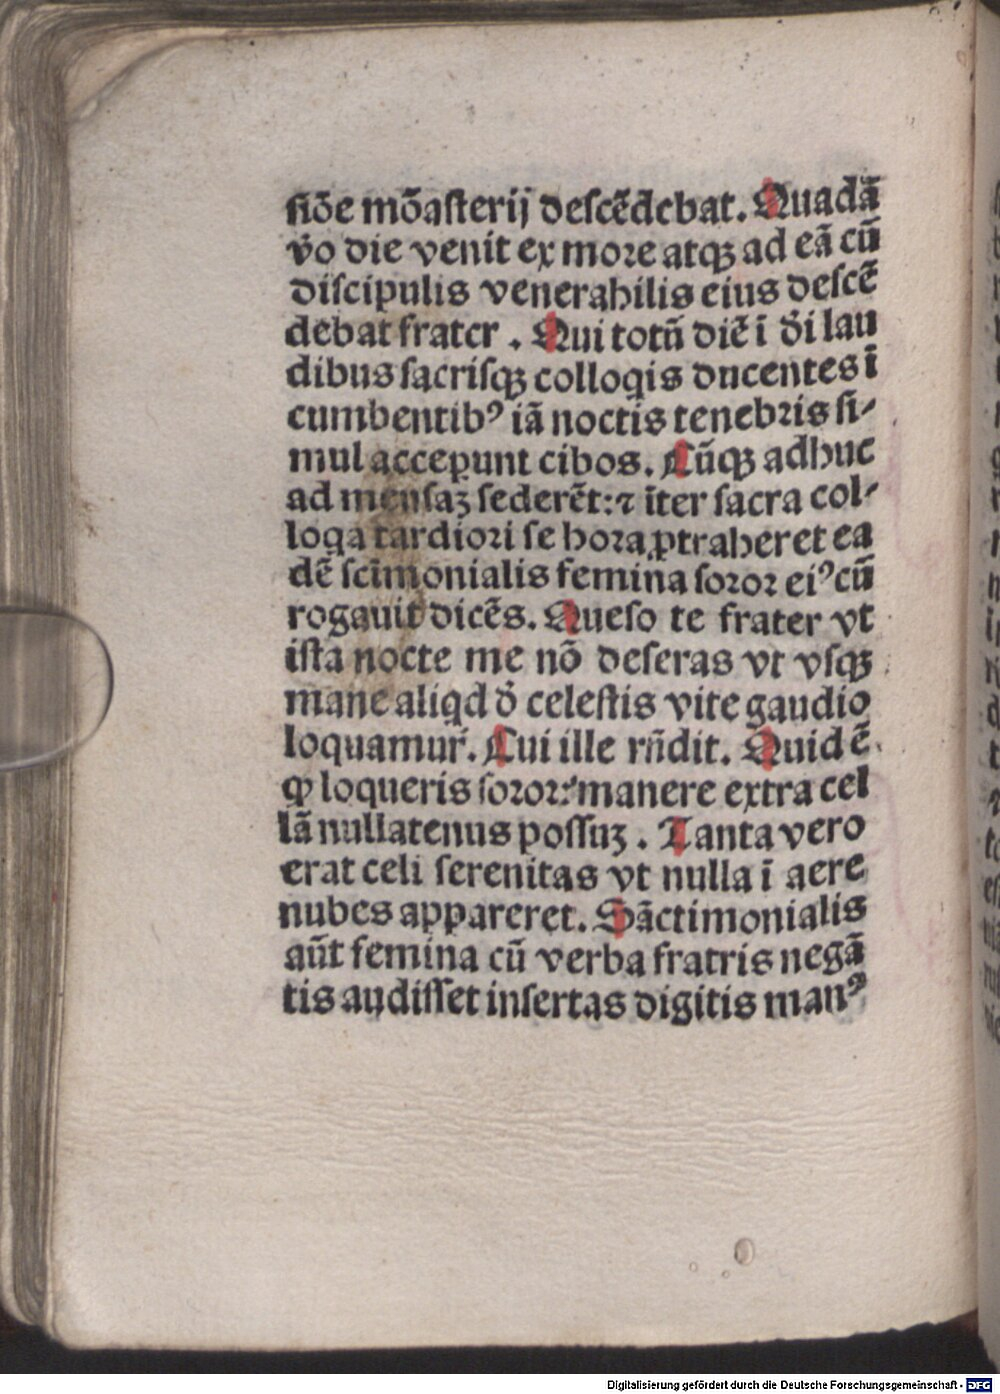 ſiõe mõaſterij deſcẽdebat. Quadã
v̓o die venit ex more atqꝫ ad eã cũ
diſcipulis venerabilis eius deſcẽ
debat frater. Qui totũ diẽ ĩ d̓i lau
dibus ſacriſqꝫ colloqis ducentes ĩ
cumbentibꝰ iã noctis tenebris ſi⸗
mul acceꝑunt cibos. Cũqꝫ adhuc
ad menſaꝫ ſederẽt: ⁊ ĩter ſacra col⸗
loqa tardiori ſe hora ꝓtraheret ea
dẽ ſcĩmonialis femina ſoror eiꝰ cũ
rogauit dicẽs. Queſo te frater vt
iſta nocte me nõ deſeras vt vſqꝫ
mane aliqd d̓ celeſtis vite gaudio
loquamur̃. Cui ille rñdit. Quid ẽ
ꝙ loqueris ſoror: manere extra cel
lã nullatenus poſſuꝫ. Tanta vero
erat celi ſerenitas vt nulla ĩ aere
nubes appareret. Sãctimonialis
aũt femina cũ verba fratris negã
tis audiſſet inſertas digitis manꝰ
Digitalisierung gefördert durch die Deutsche Forschungsgemeinschaft - DFG